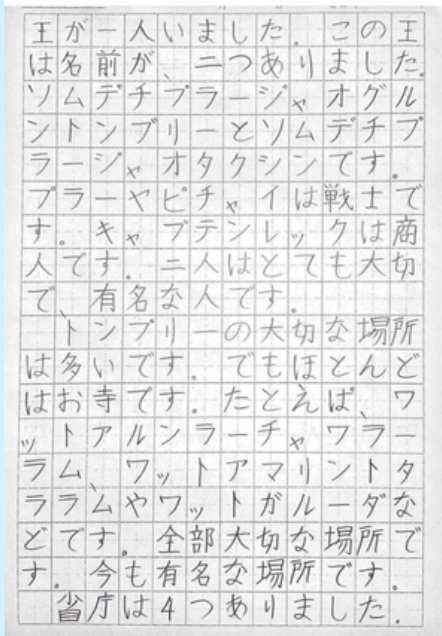 王が一人いました。この王
は名前が、二つありました。
ソムデチプラージャオグル
ントンブリーとソムデチプ
ラージャオタクシンです。
プラーヤピチャイは戦士で
す。キャプテンレックは商
人です。二人はとても大切
で、有名な人です。
トンブリーの大切な場所
は多いです。でもほとんど
はお寺です。たとえば、ワ
ットアルンラーチャワラー
ラム、ワットアマリントタ
ララムやワットガルーダな
どです。全部大切な場所で
す。今も有名な場所です。
省庁は4つありました。